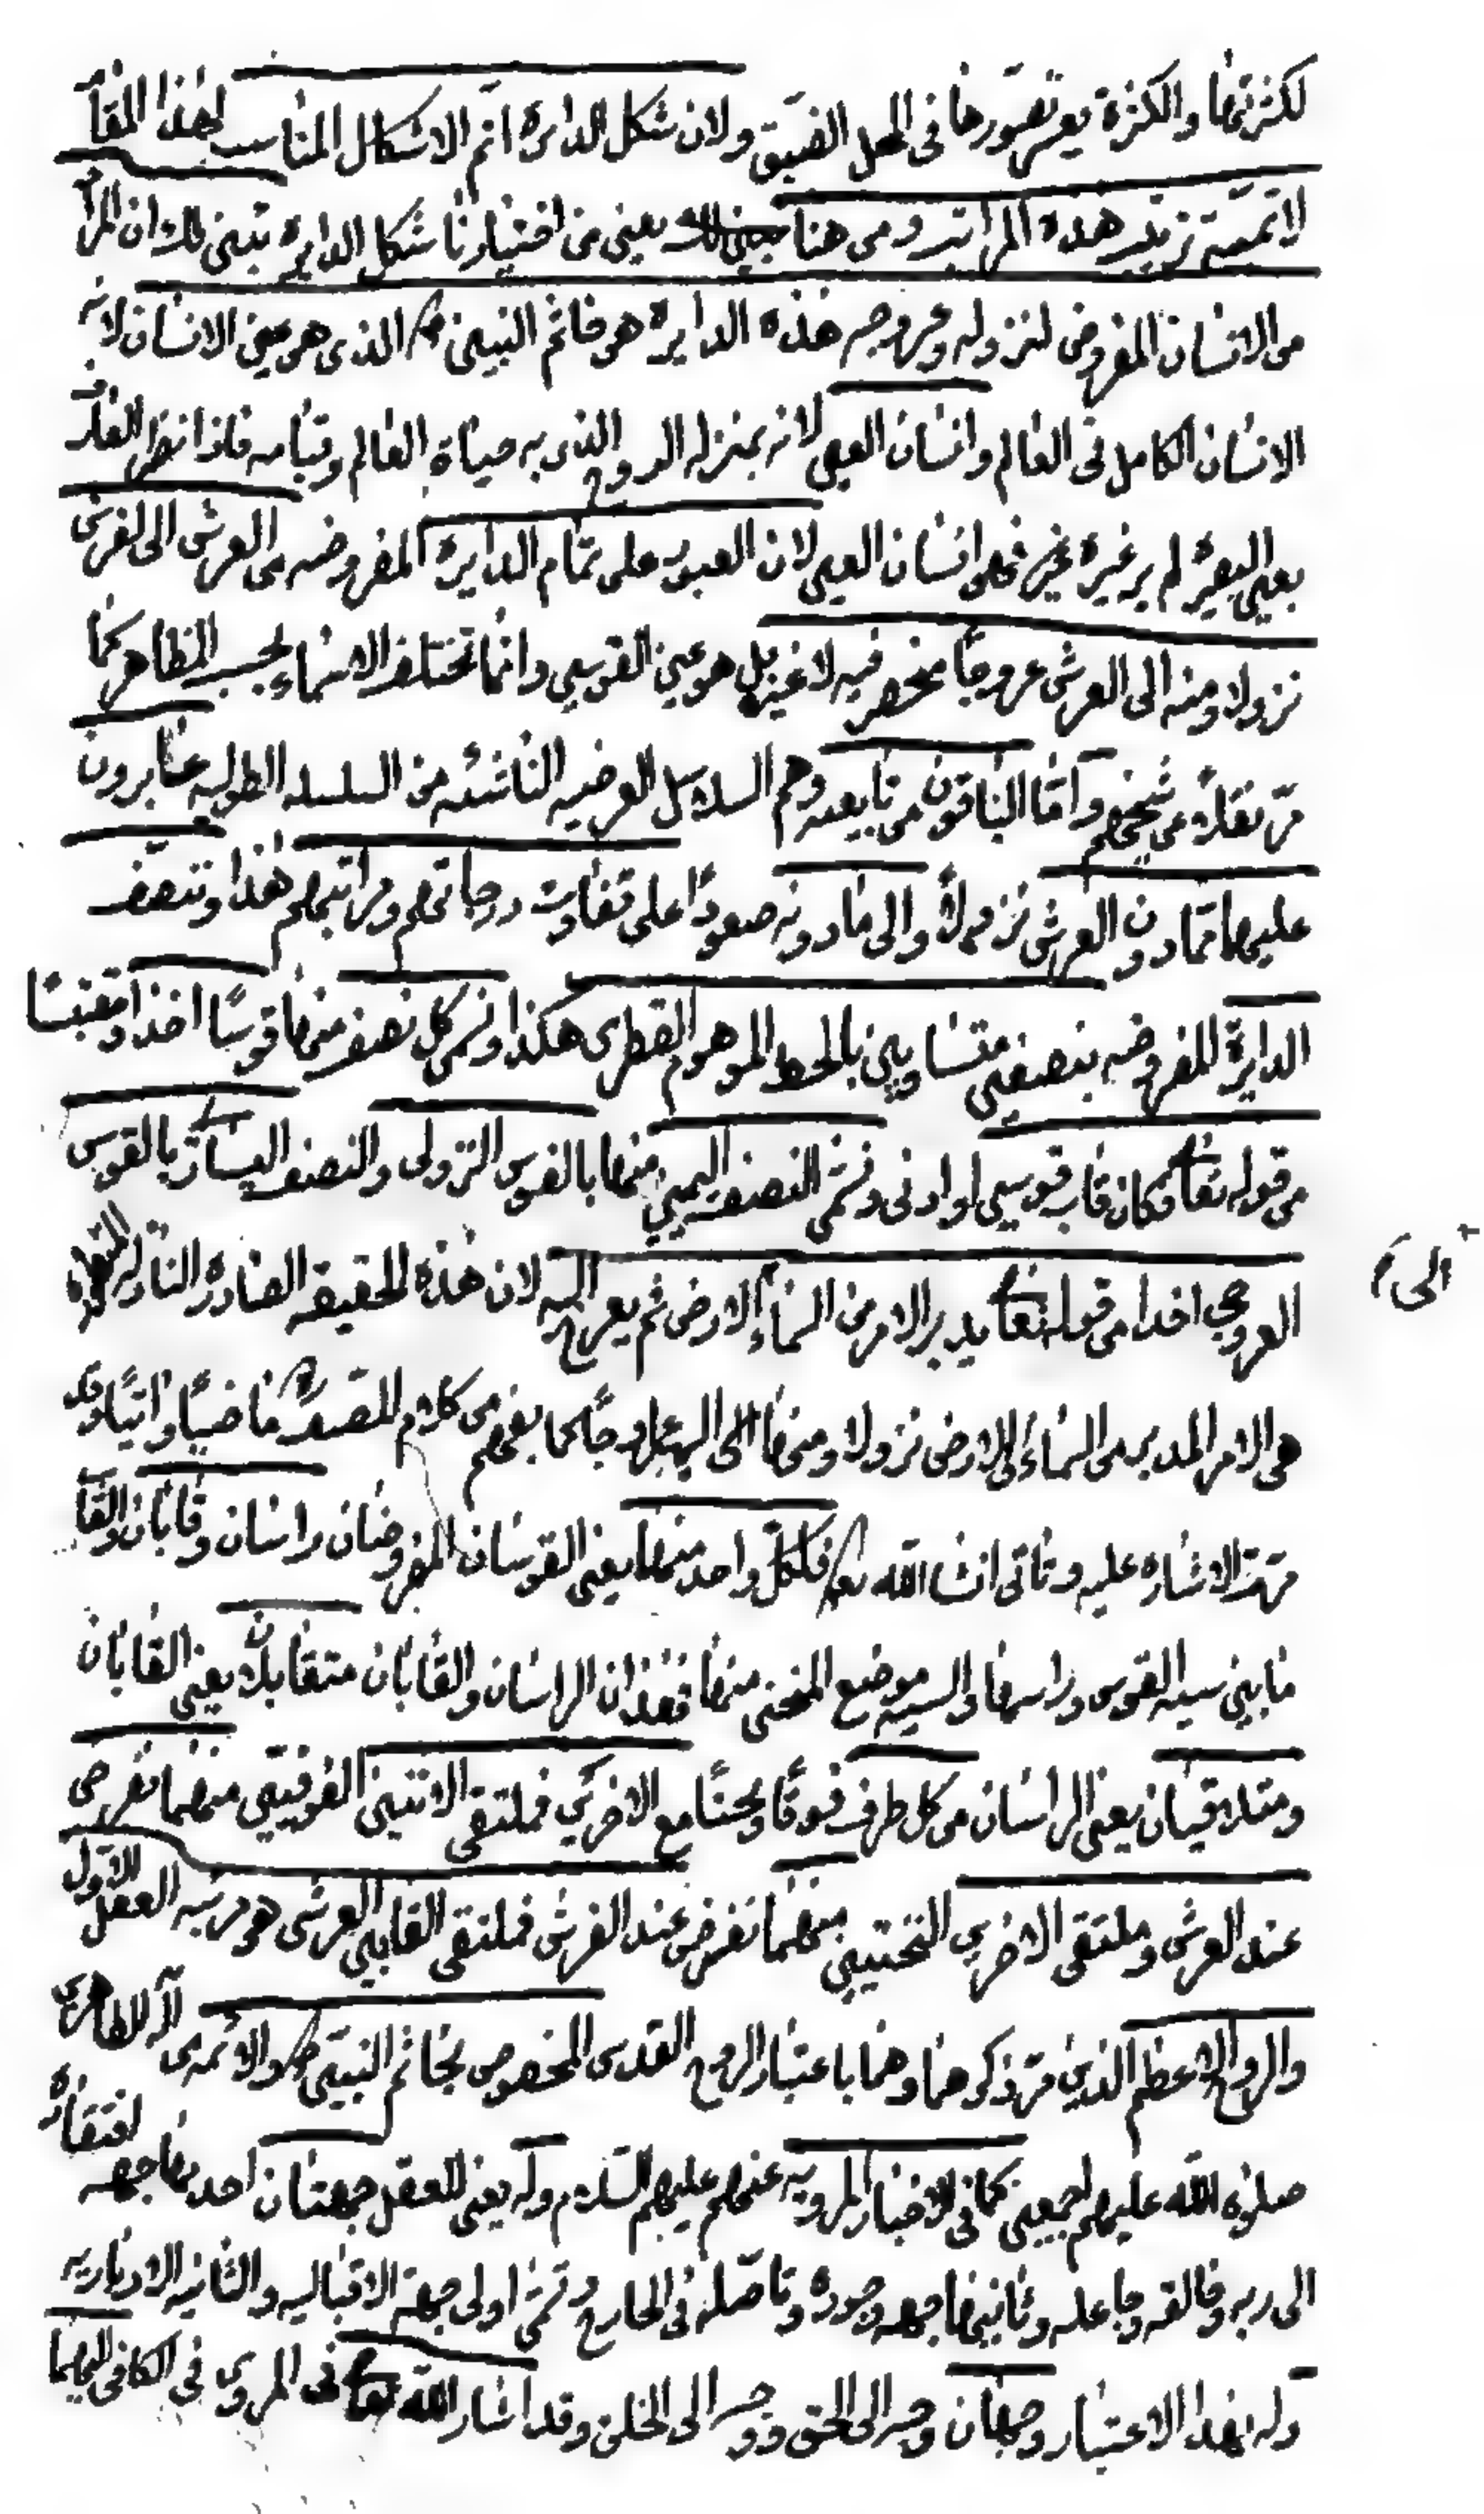 لكثرتها والكثرة يعسر تصورها فى المحل الضيق ولان شكل الدايرة اتم الاشكال المناسب لهذا المقام
لاتمية ترتيب هذه المراتب ومن هنا يعنى من اختيارنا شكل الدايرة تبين لك ان المراد
من الانسان المفروض لنزوله وعروجه هذه الدايرة هو خاتم النبيين ص الذى هو عين الانسان لانه
الانسان الكامل فى العالم وانسان العين لانه بمنزلة الروح الذى به حياة العالم وقيامه فاذا نظر العارف
بعين البصيرة لم ير غيره فهو انسان العين لان العبور على تمام الدايرة المفروضه من العرش الى الفرش
نزولا ومنه الى العرش عروجا منحصر فيه لا غير بل هو عين القوسين وانما تختلف الاسماء بحسب المظاهر كما
مر نقله من شيخهم واما الباقون من تابعيه وهم السلاسل العرضيه الناشئه من السلسله الطوليه عابرون
عليها مما دون العرش نزولا والى ما دونه صعودا على تفاوت درجاتهم ومراتبهم هذا وتنصف
الدايرة المفروضه بنصفين متساويين بالخط الموهوم القطرى هكذا ونسمى كل نصف منها قوسا اخذا ومقتبسا
من قوله تعا فكان قاب قوسين او ادنى ونسمى النصف اليمين منها بالقوس النزولى والنصف اليسار بالقوس
العروجى اخذا من قوله تعا يدبر الامر من السماء الى الارض ثم يعرج اليه لان هذه الحقيقه الصادره النازله
هى الامر المدبر من السماء الى الارض نزولا ومنها الى اليه عروجا كما يفهم من كلام المصدر ره ماضيا واتيا وقد
مرت الاشاره عليه وتاتى انشا الله تع فلكل واحد منهما يعنى القوسان المفروضان راسان وقابان والقاب
ما بين سيه القوس وراسها والسيه موضع المنحنى منها فهذان الراسان والقابان متقابلان يعنى القابان
ومتلاقيان يعنى الراسان من كل طرف فوقا وتحتا مع الاخرين فملتقى الاثنين الفوقيين منهما نفرض
عند العرش وملتقى الاخرين التحتيين منهما نفرض عند الفرش فملتقى القابين العرشى هو مرتبه العقل الاول
والروح الاعظم الذين مر ذكرهما وهما باعتبار الروح القدسى المخصوص بخاتم النبيين ص والائمه من آله الطاهرين
صلوة الله عليهم اجمعين كما فى الاخبار المرويه عنهم عليهم السلام وله يعنى للعقل جهتان احديهما جهه افتقاره
الى ربه وخالقه وجاعله وثانيتهما جهه وجوده وتاصله فى الخارج وتسمى اولى جهة الاقباليه والثانيه الادباريه
وله بهذا الاعتبار وجهان وجه الى الحق ووجه الى الخلق وقد اشار الله تعا فى المروى فى الكافى اليهما
الى